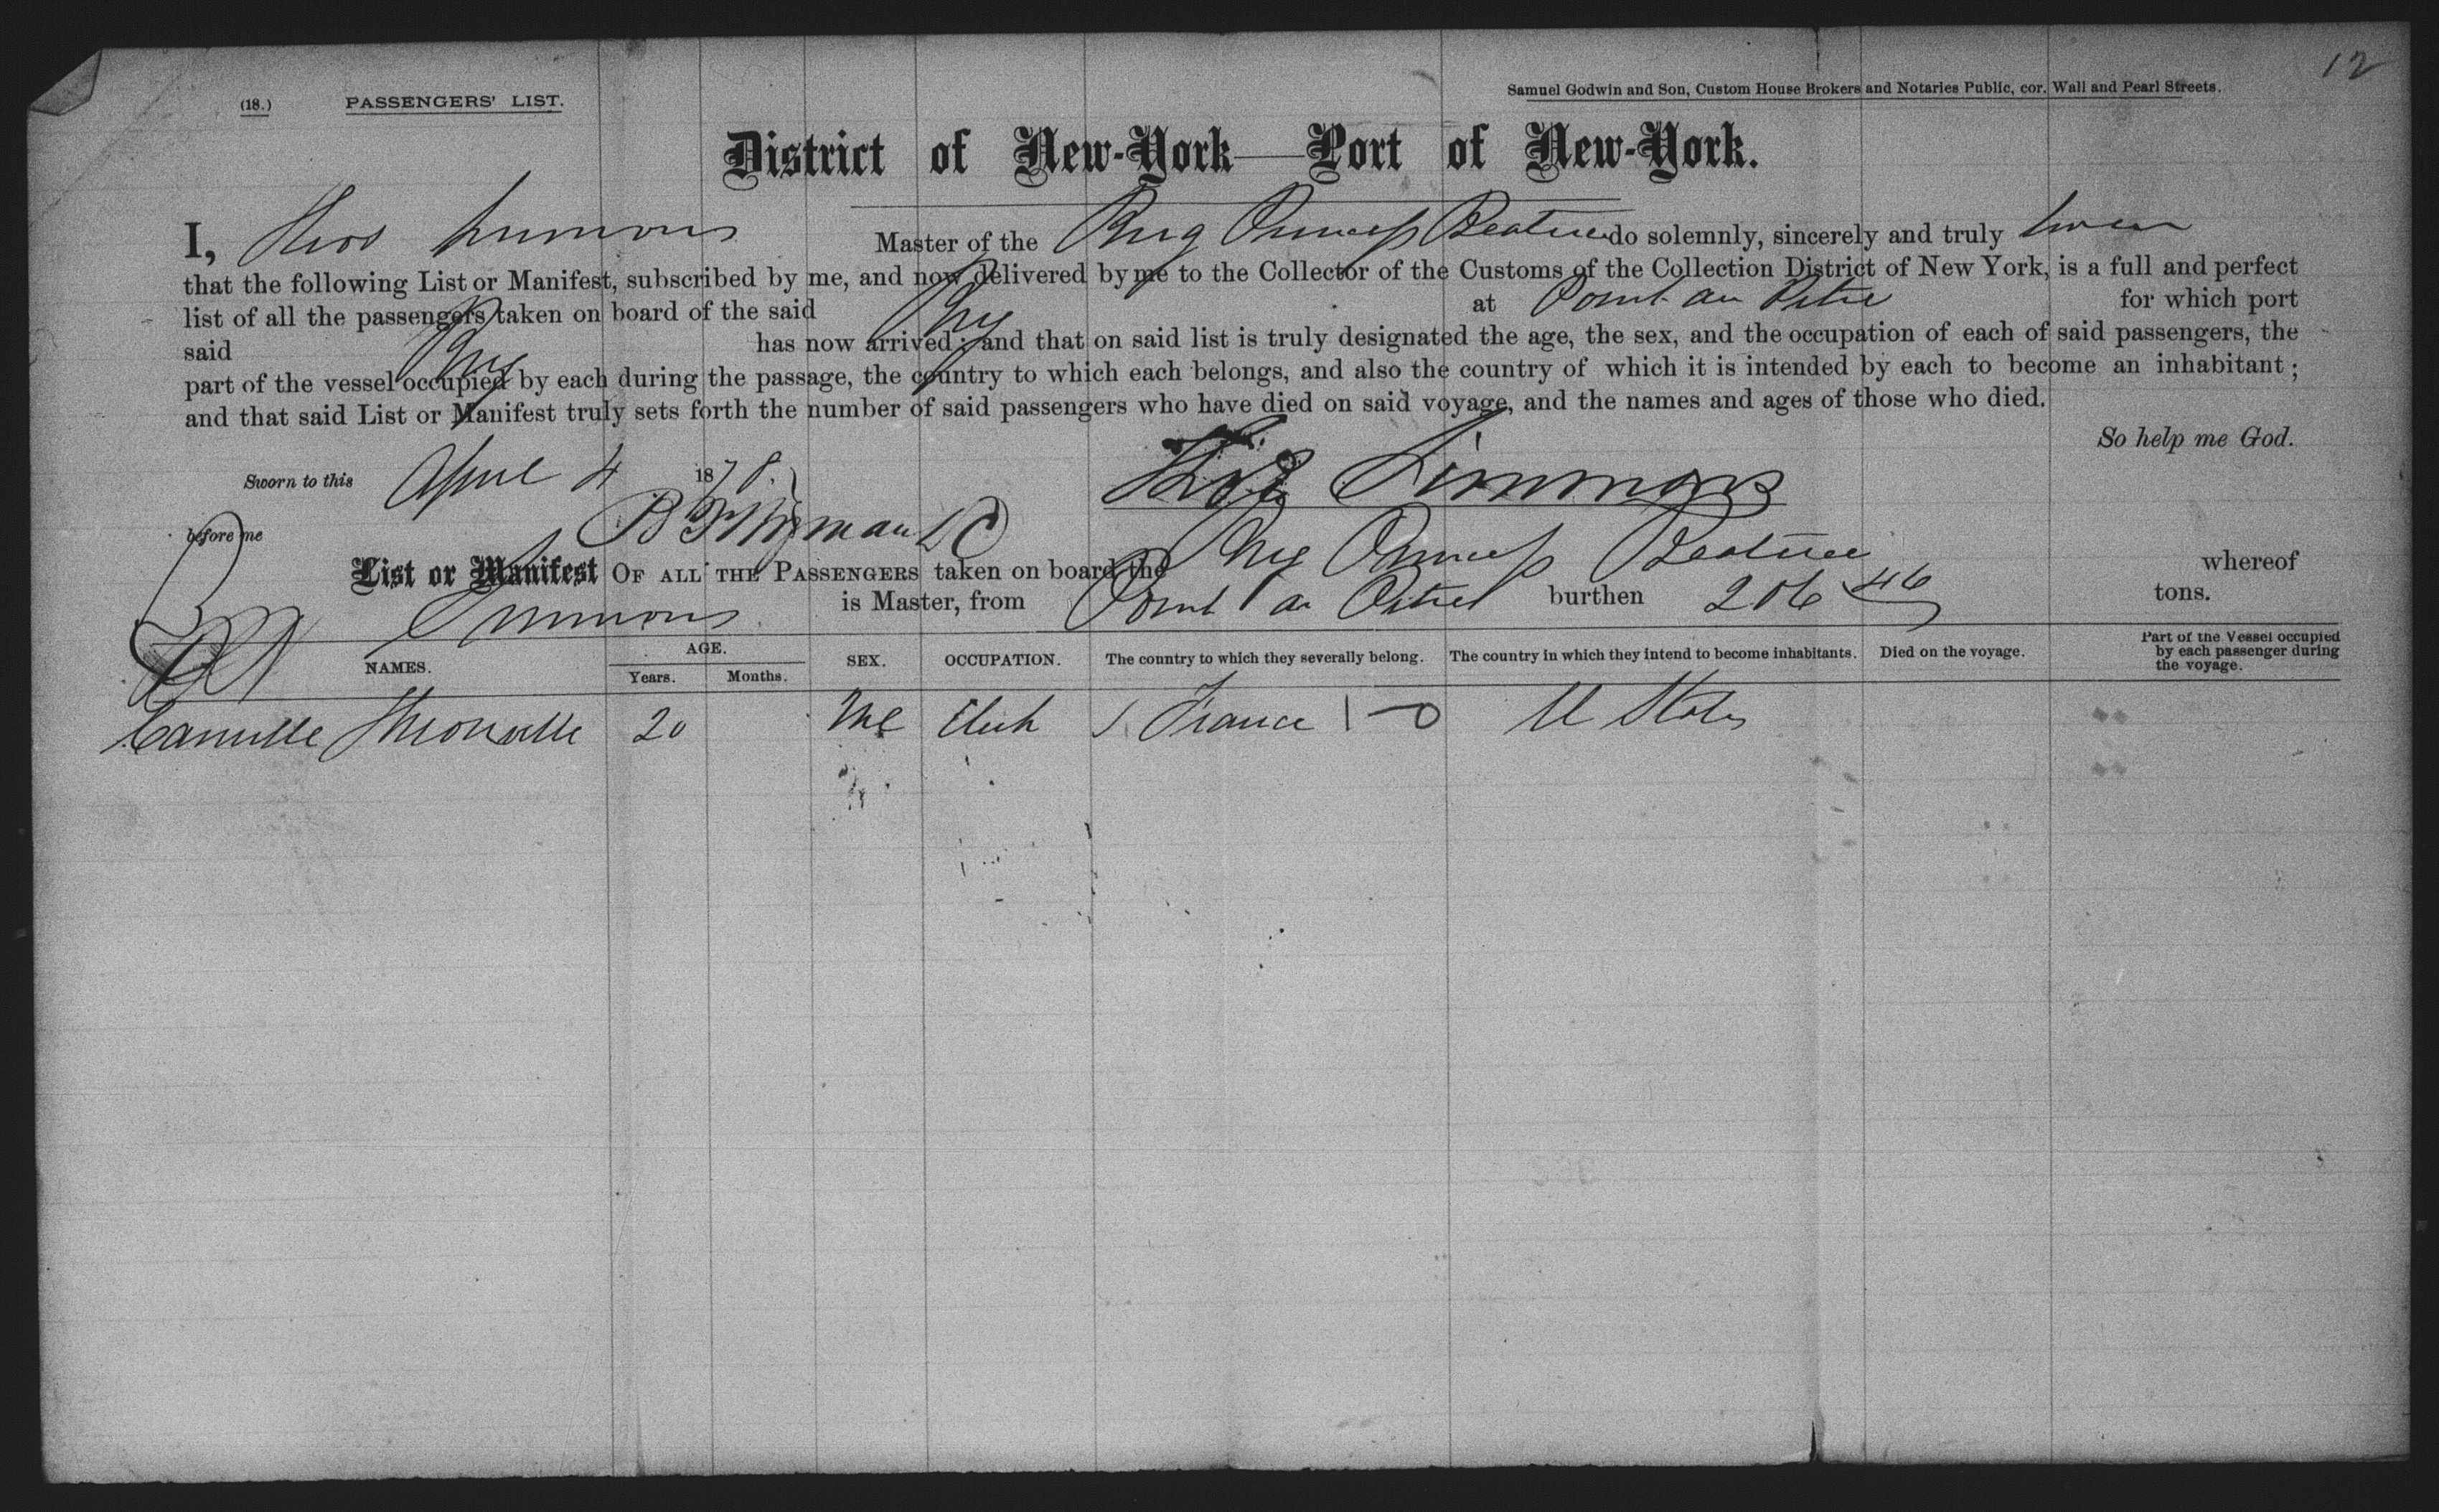 12
(18.) PASSENGERS' LIST. Samuel Godwin and Son, Custom House Brokers and Notaries Public, cor. Wall and Pearl Streets.
District of New-York—Port of New-York.
I, Thos Simmons Master of the Brig Princess Beatrice do solemnly, sincerely and truly swear
that the following List or Manifest, subscribed by me, and now delivered by me to the Collector of the Customs of the Collection District of New York, is a full and perfect
list of all the passengers taken on board of the said Brig at Point au Petre for which port
said Brig has now arrived; and that on said list is truly designated the age, the sex, and the occupation of each of said passengers, the
part of the vessel occupied by each during the passage, the country to which each belongs, and also the country of which it is intended by each to become an inhabitant;
and that said List or Manifest truly sets forth the number of said passengers who have died on said voyage, and the names and ages of those who died.
So help me God.
Sworn to this April 4 1878. Thos Simmons
before me
List or Manifest OF ALL THE PASSENGERS taken on board the Brig Princess Beatrice whereof
Simmons is Master, from Point au Petre burthen 206 46 tons.
NAMES. AGE. Years. Months. SEX. OCCUPATION. The country to which they severally belong. The country in which they intend to become inhabitants. Died on the voyage. Part of the Vessel occupied by each passenger during the voyage.
Camille 20 Clerk France U States